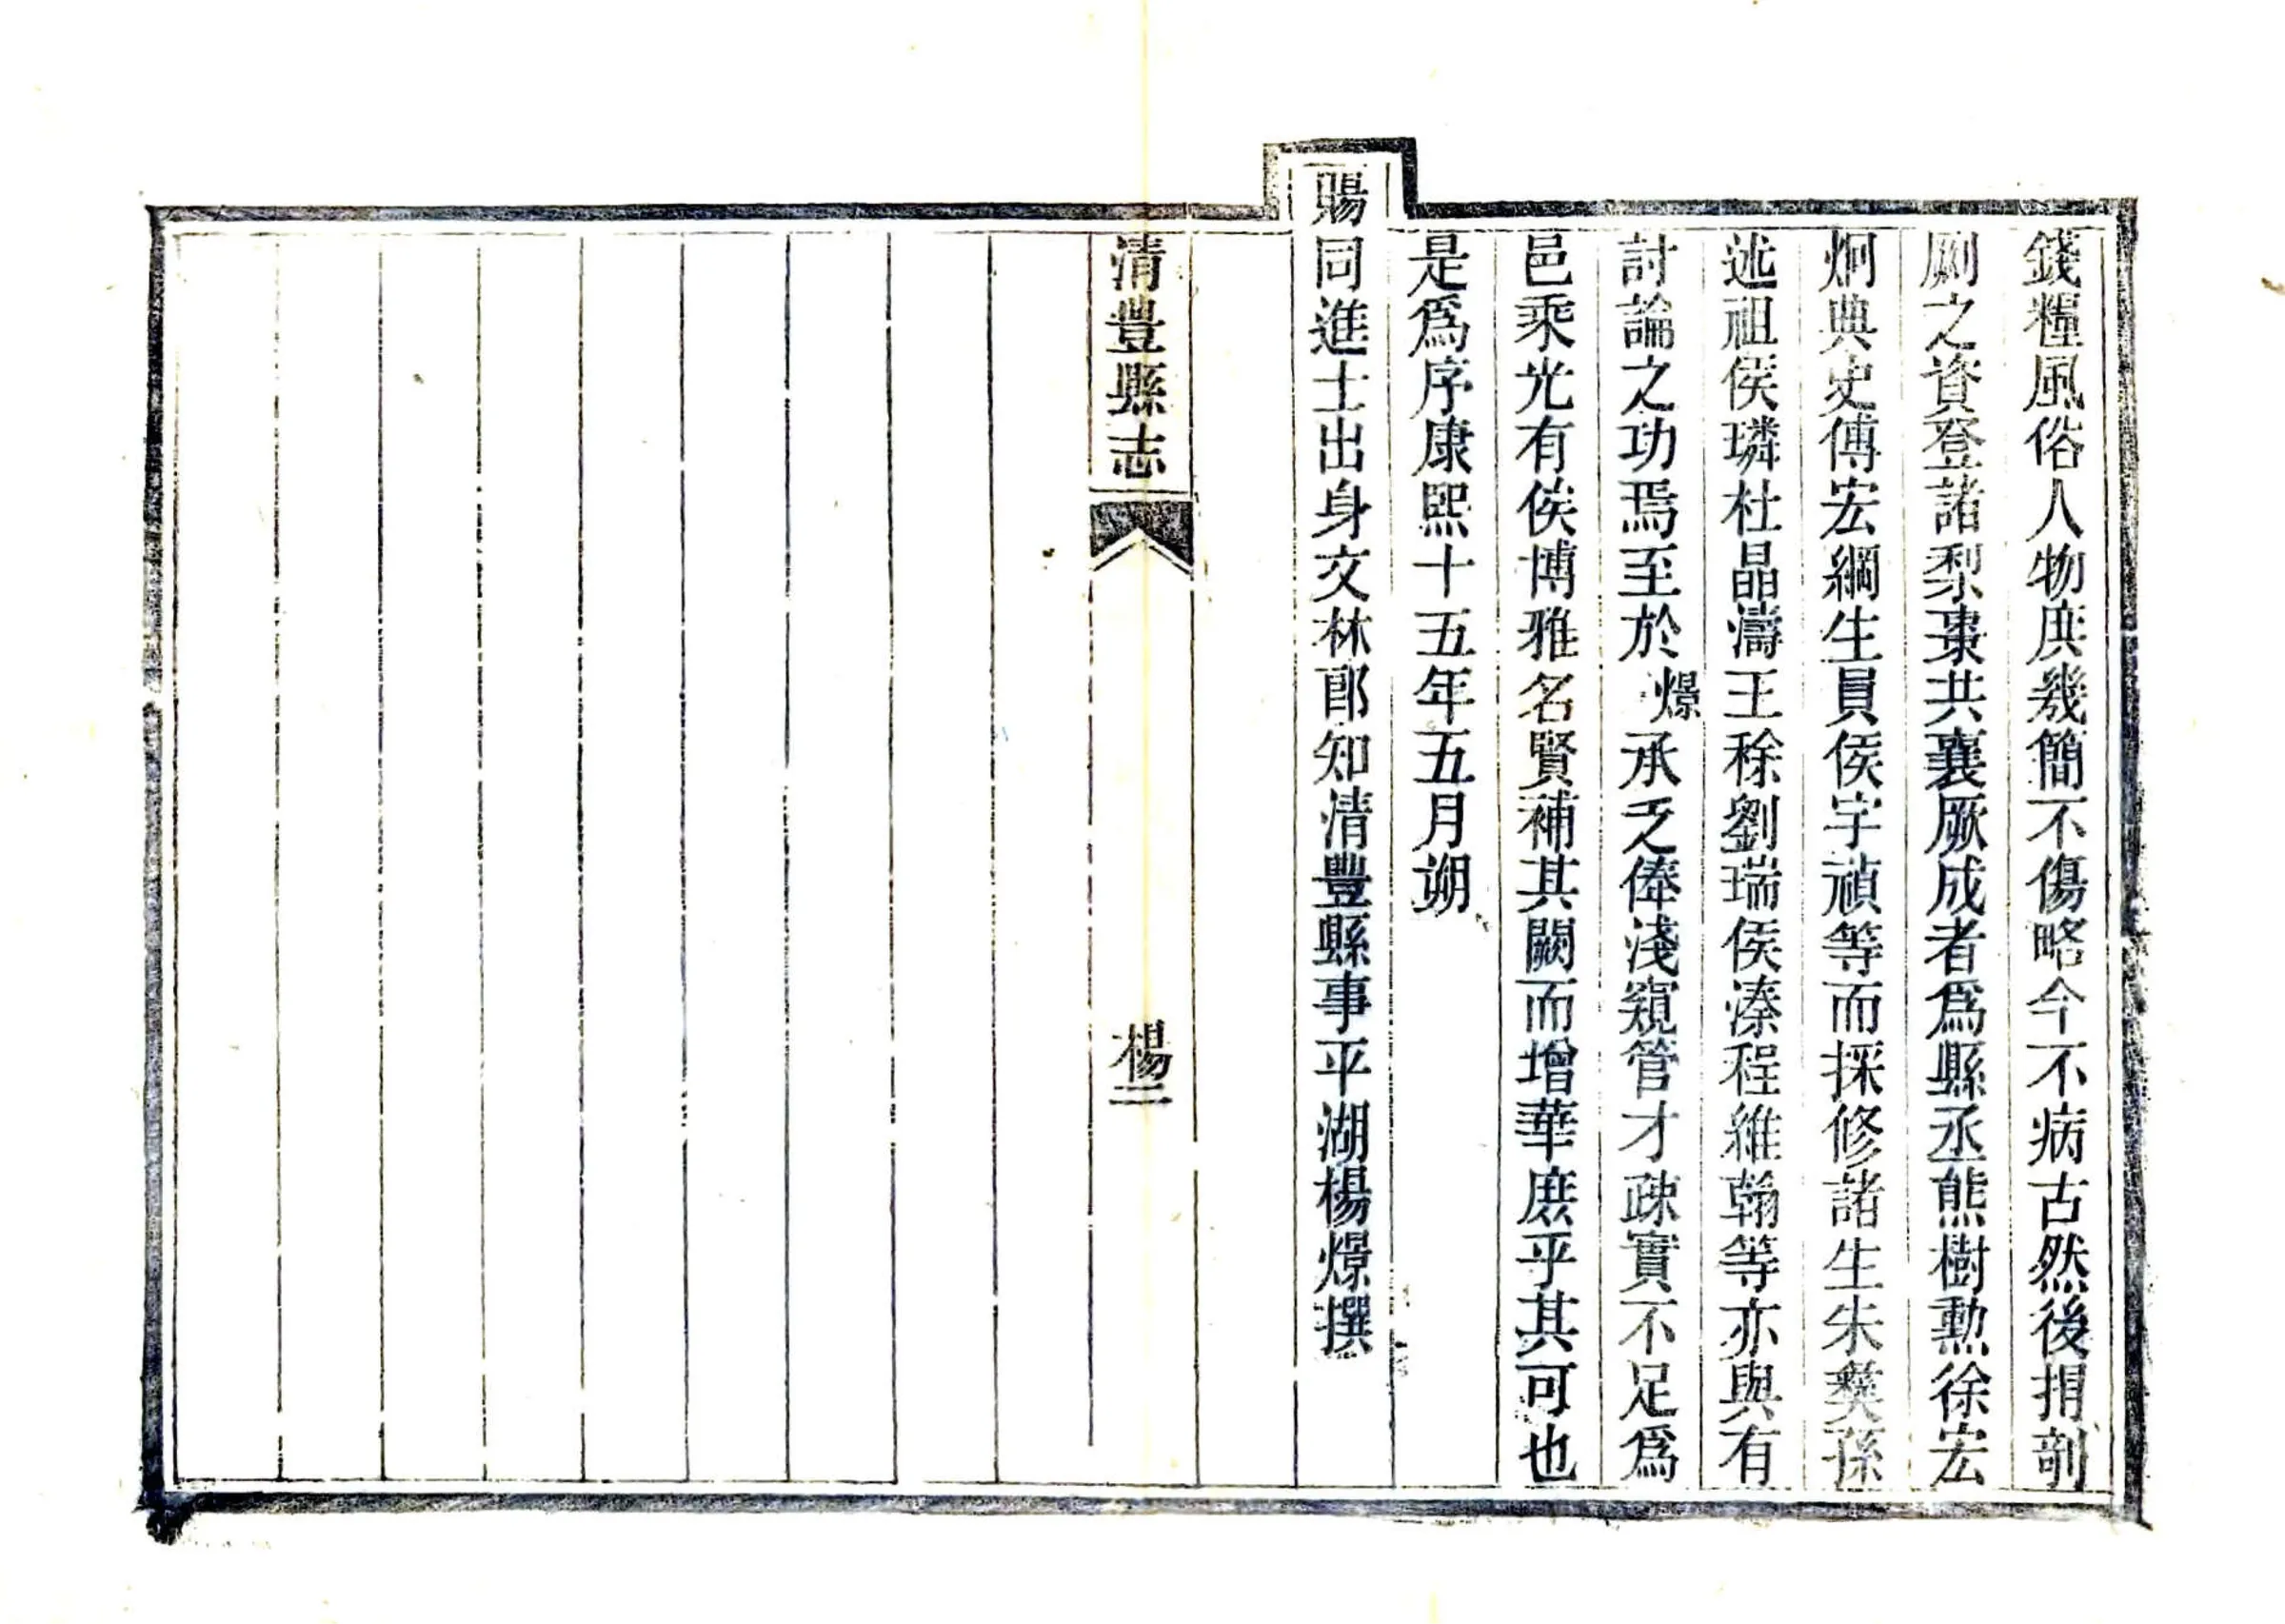 錢糧風俗人物庶幾簡不傷略今不病古然後捐剞
劂之資登諸梨棗共襄厥成者爲縣丞熊樹勲徐宏
炯典史傅宏綱生員侯字禎等而採修諸生朱羙孫
述祖侯璘杜晶濤王稌劉瑞侯溱程維翰等亦與有
討論之功焉至於燝承乏俸淺窺管才疎實不足爲
邑乘光有俟博雅名賢補其闕而增華庶乎其可也
是爲序康熙十五年五月朔
賜同進士出身文林郎知清豐縣事平湖楊燝撰
清豐縣志
楊二